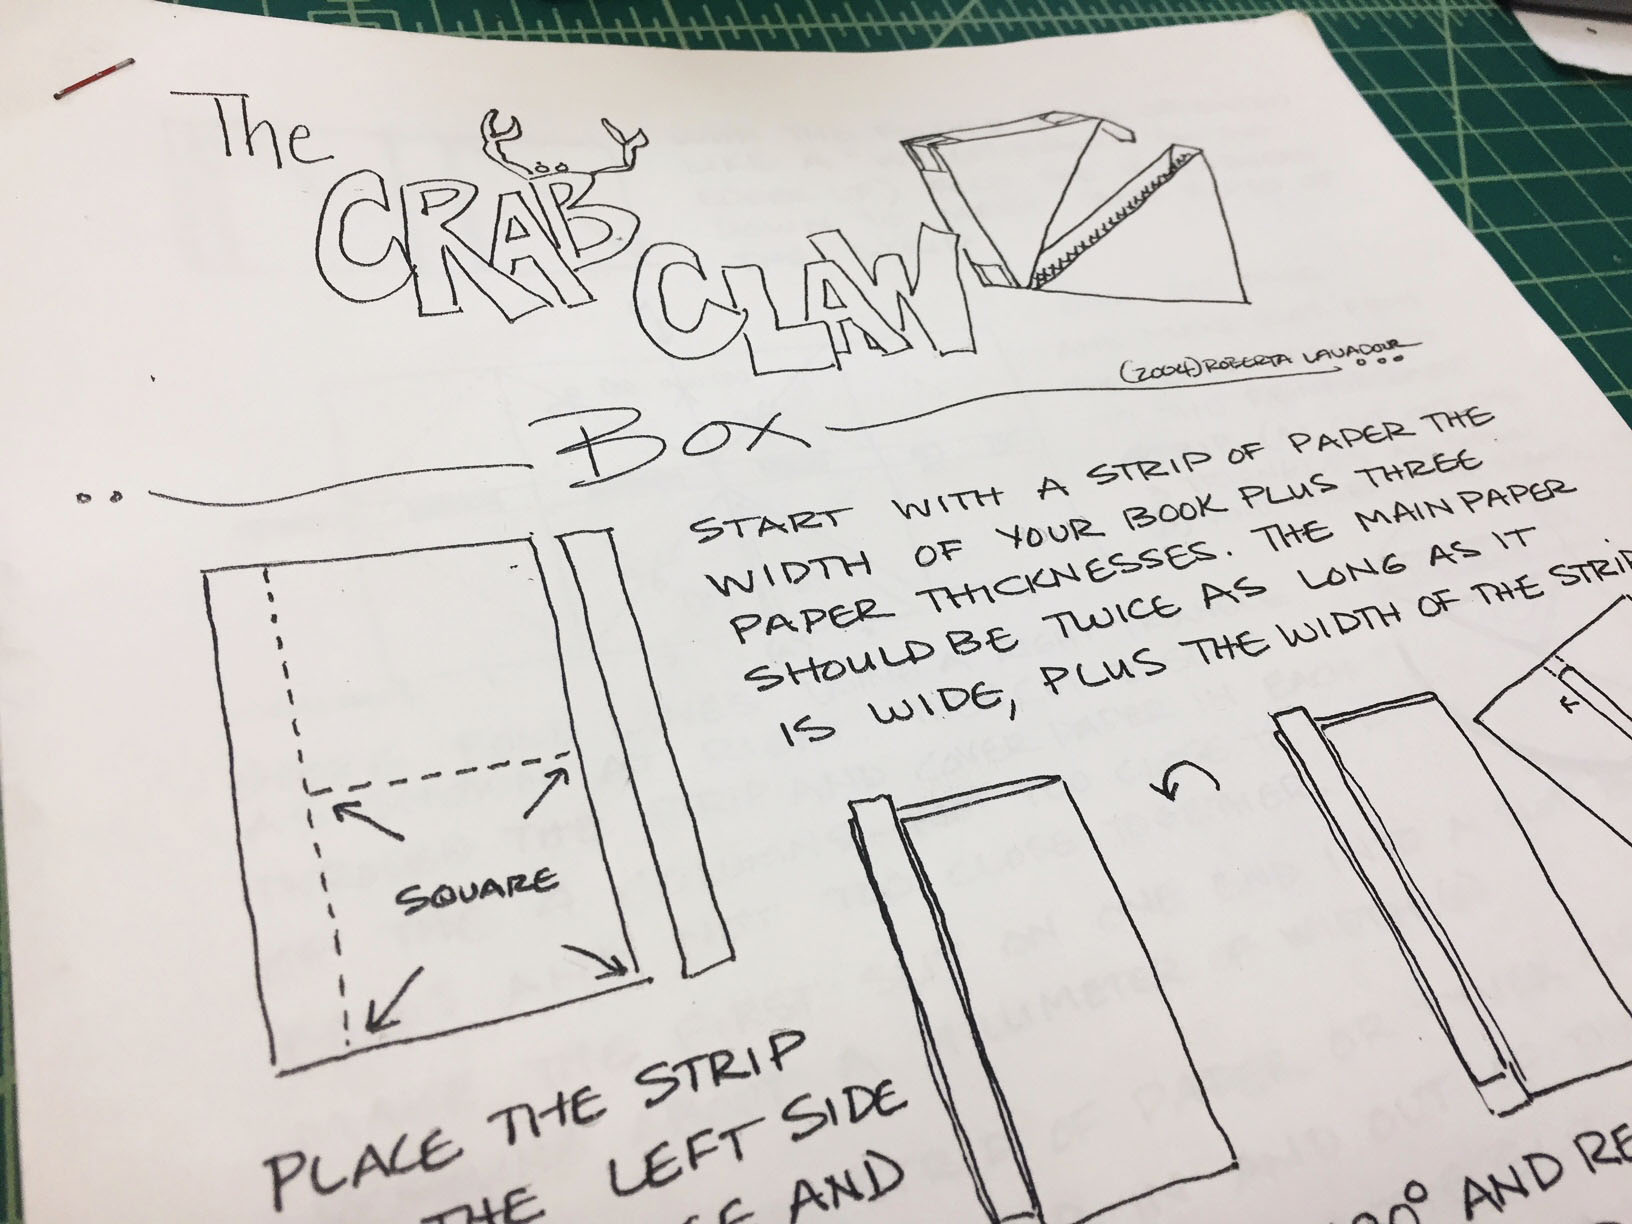 The
CRAB
CLAW
(2004) ROBERTA LAVADOUR
Box
START WITH A STRIP OF PAPER THE
WIDTH OF YOUR BOOK PLUS THREE
PAPER THICKNESSES. THE MAIN PAPER
SHOULD BE TWICE AS LONG AS IT
IS WIDE, PLUS THE WIDTH OF THE STRIP
SQUARE
PLACE THE STRIP
LEFT SIDE
THE
AND
AND